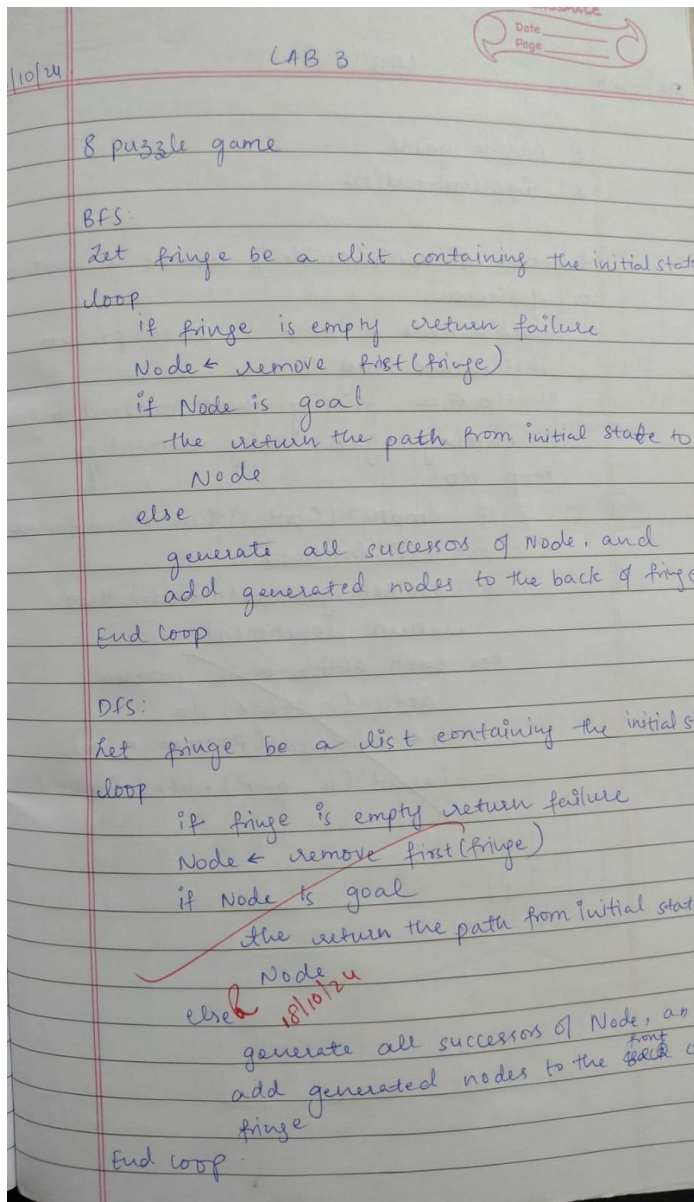 Date
Page
/10/24
LAB 3
8 puzzle game
BFS:
Let fringe be a list containing the initial stat
loop
if fringe is empty return failure
Node ← remove first(fringe)
if Node is goal
the return the path from initial state to
Node
else
generate all successors of Node, and
add generated nodes to the back of fringe
End loop
DFS:
Let fringe be a list containing the initial s
loop
if fringe is empty return failure
Node ← remove first(fringe)
if Node is goal
the return the path from initial stat
Node
else
18/10/24
generate all successors of Node, an
front
add generated nodes to the back o
fringe
End loop